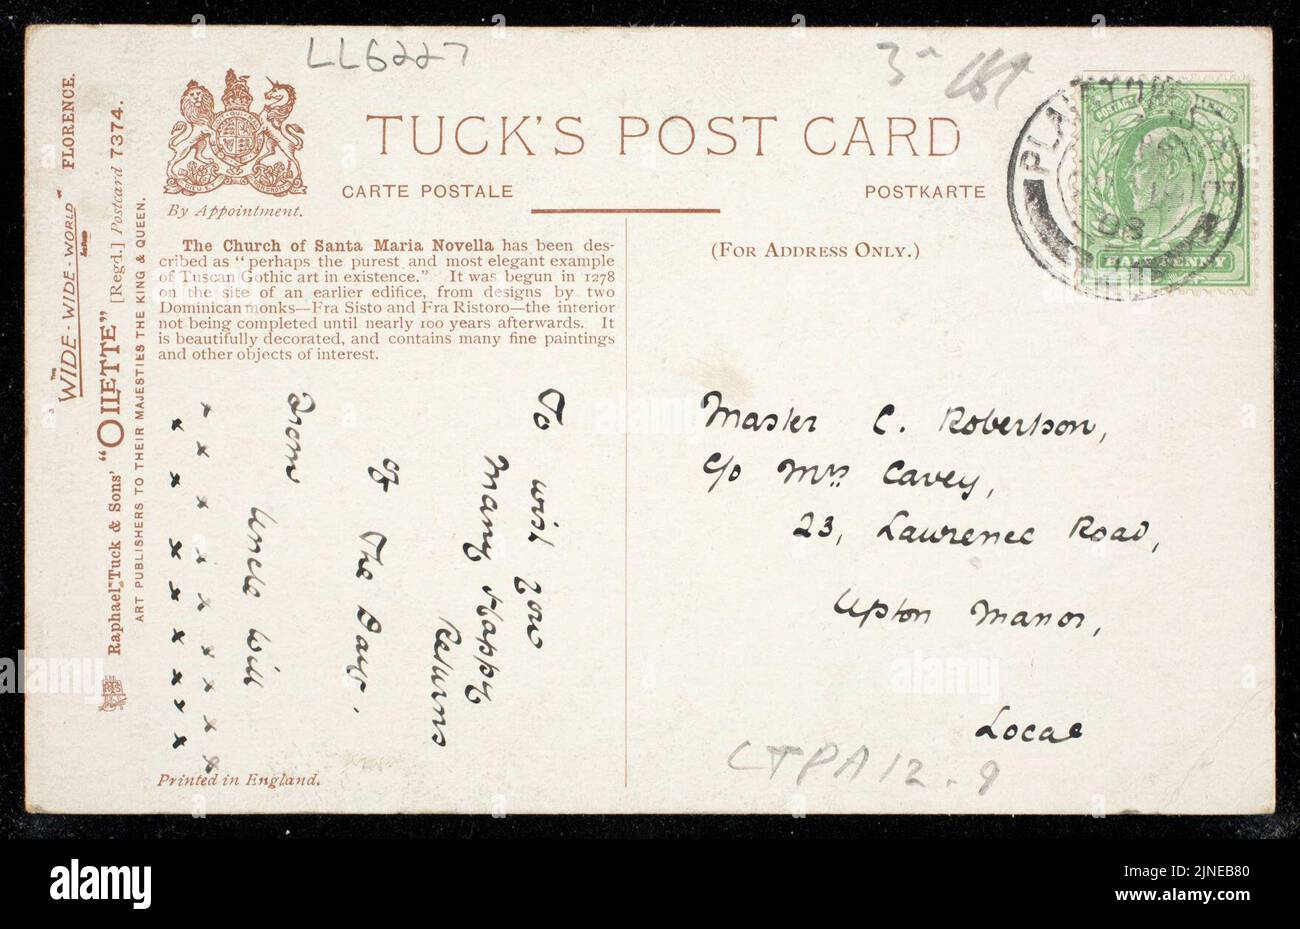 LL6227
"WIDE-WIDE-WORLD" FLORENCE.
Raphael Tuck & Sons' "OILETTE" [Regd.] Postcard 7374.
ART PUBLISHERS TO THEIR MAJESTIES THE KING & QUEEN.
By Appointment.
TUCK'S POST CARD
CARTE POSTALE
POSTKARTE
(FOR ADDRESS ONLY.)
The Church of Santa Maria Novella has been des-
cribed as "perhaps the purest and most elegant example
of Tuscan Gothic art in existence." It was begun in 1278
on the site of an earlier edifice, from designs by two
Dominican monks—Fra Sisto and Fra Ristoro—the interior
not being completed until nearly 100 years afterwards. It
is beautifully decorated, and contains many fine paintings
and other objects of interest.
To wish you
Many Happy
Returns
of The Day.
From
Uncle Will
x x x x x x x x
x x x x x x x x
Printed in England.
HALFPENNY
Master C. Robertson,
c/o Mrs Cavey,
23, Lawrence Road,
Upton Manor,
Local
LTPA12.9
alamy
Image ID: 2JNEB80
www.alamy.com